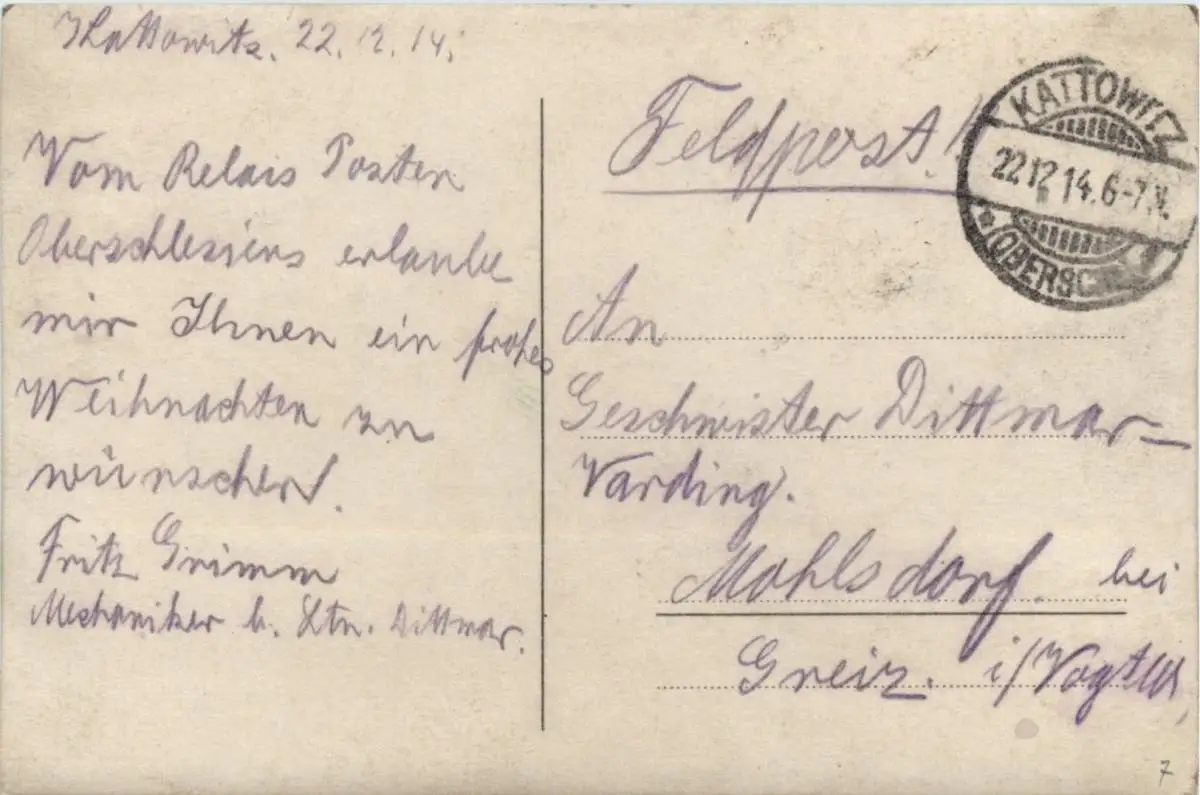 Kattowitz. 22.12.14.
Vom Relais Posten
Oberschlesiens erlaube
mir Ihnen ein frohes
Weihnachten zu
wünschen!
Fritz Grimm
Mechaniker b. Ltn. Dittmar.
Feldpost!
KATTOWITZ
22 12 14. 6-7.V.
* (OBERSCHL.)
An
Geschwister Dittmar-
Varding.
Mohlsdorf. bei
Greiz. i/Vogtld,
7